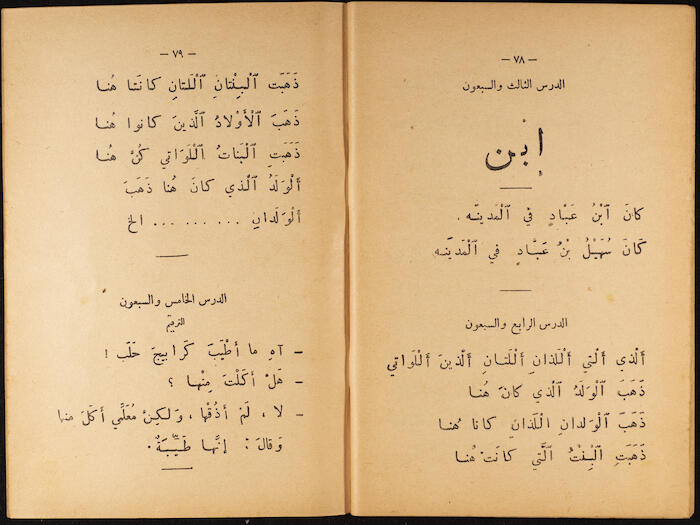 — ٧٨ —
الدرس الثالث والسبعون
إبن
كانَ ٱبْنُ عَبْادٍ في ٱلْمَدينَه .
كَانَ سُهَيْلُ بْنُ عَبَّادٍ في ٱلْمَدينَه
الدرس الرابع والسبعون
أَلَّذي أَلَّتي أَللَّذانِ أَللَّتانِ أَلَّذينَ أَللَّواتي
ذَهَبَ ٱلْوَلَدُ ٱلَّذي كانَ هُنا
ذَهَبَ ٱلْوَلَدانِ ٱللَّذانِ كانا هُنا
ذَهَبَتِ ٱلْبِنْتُ ٱلَّتي كانَتْ هُنا
— ٧٩ —
ذَهَبَت ٱلْبِنْتانِ ٱللَّتانِ كانَتا هُنا
ذَهَبَ ٱلْأَوْلادُ ٱلَّذينَ كانوا هُنا
ذَهَبَتِ ٱلْبَناتُ ٱللَّواتي كُنَّ هُنا
أَلْوَلَدُ ٱلَّذي كانَ هُنا ذَهَبَ
أَلْوَلَدانِ ... ... ... الخ
الدرس الخامس والسبعون
الترقيم
– آهِ ما أَطْيَبَ كَرابيجَ حَلَب !
– هَلْ أَكَلْتَ مِنْها ؟
– لا ، لَمْ أَذُقْها ، وَلكِنْ مُعَلِّمي أَكَلَ منها
وَقالَ : إنَّها طَيِّبَةٌ .